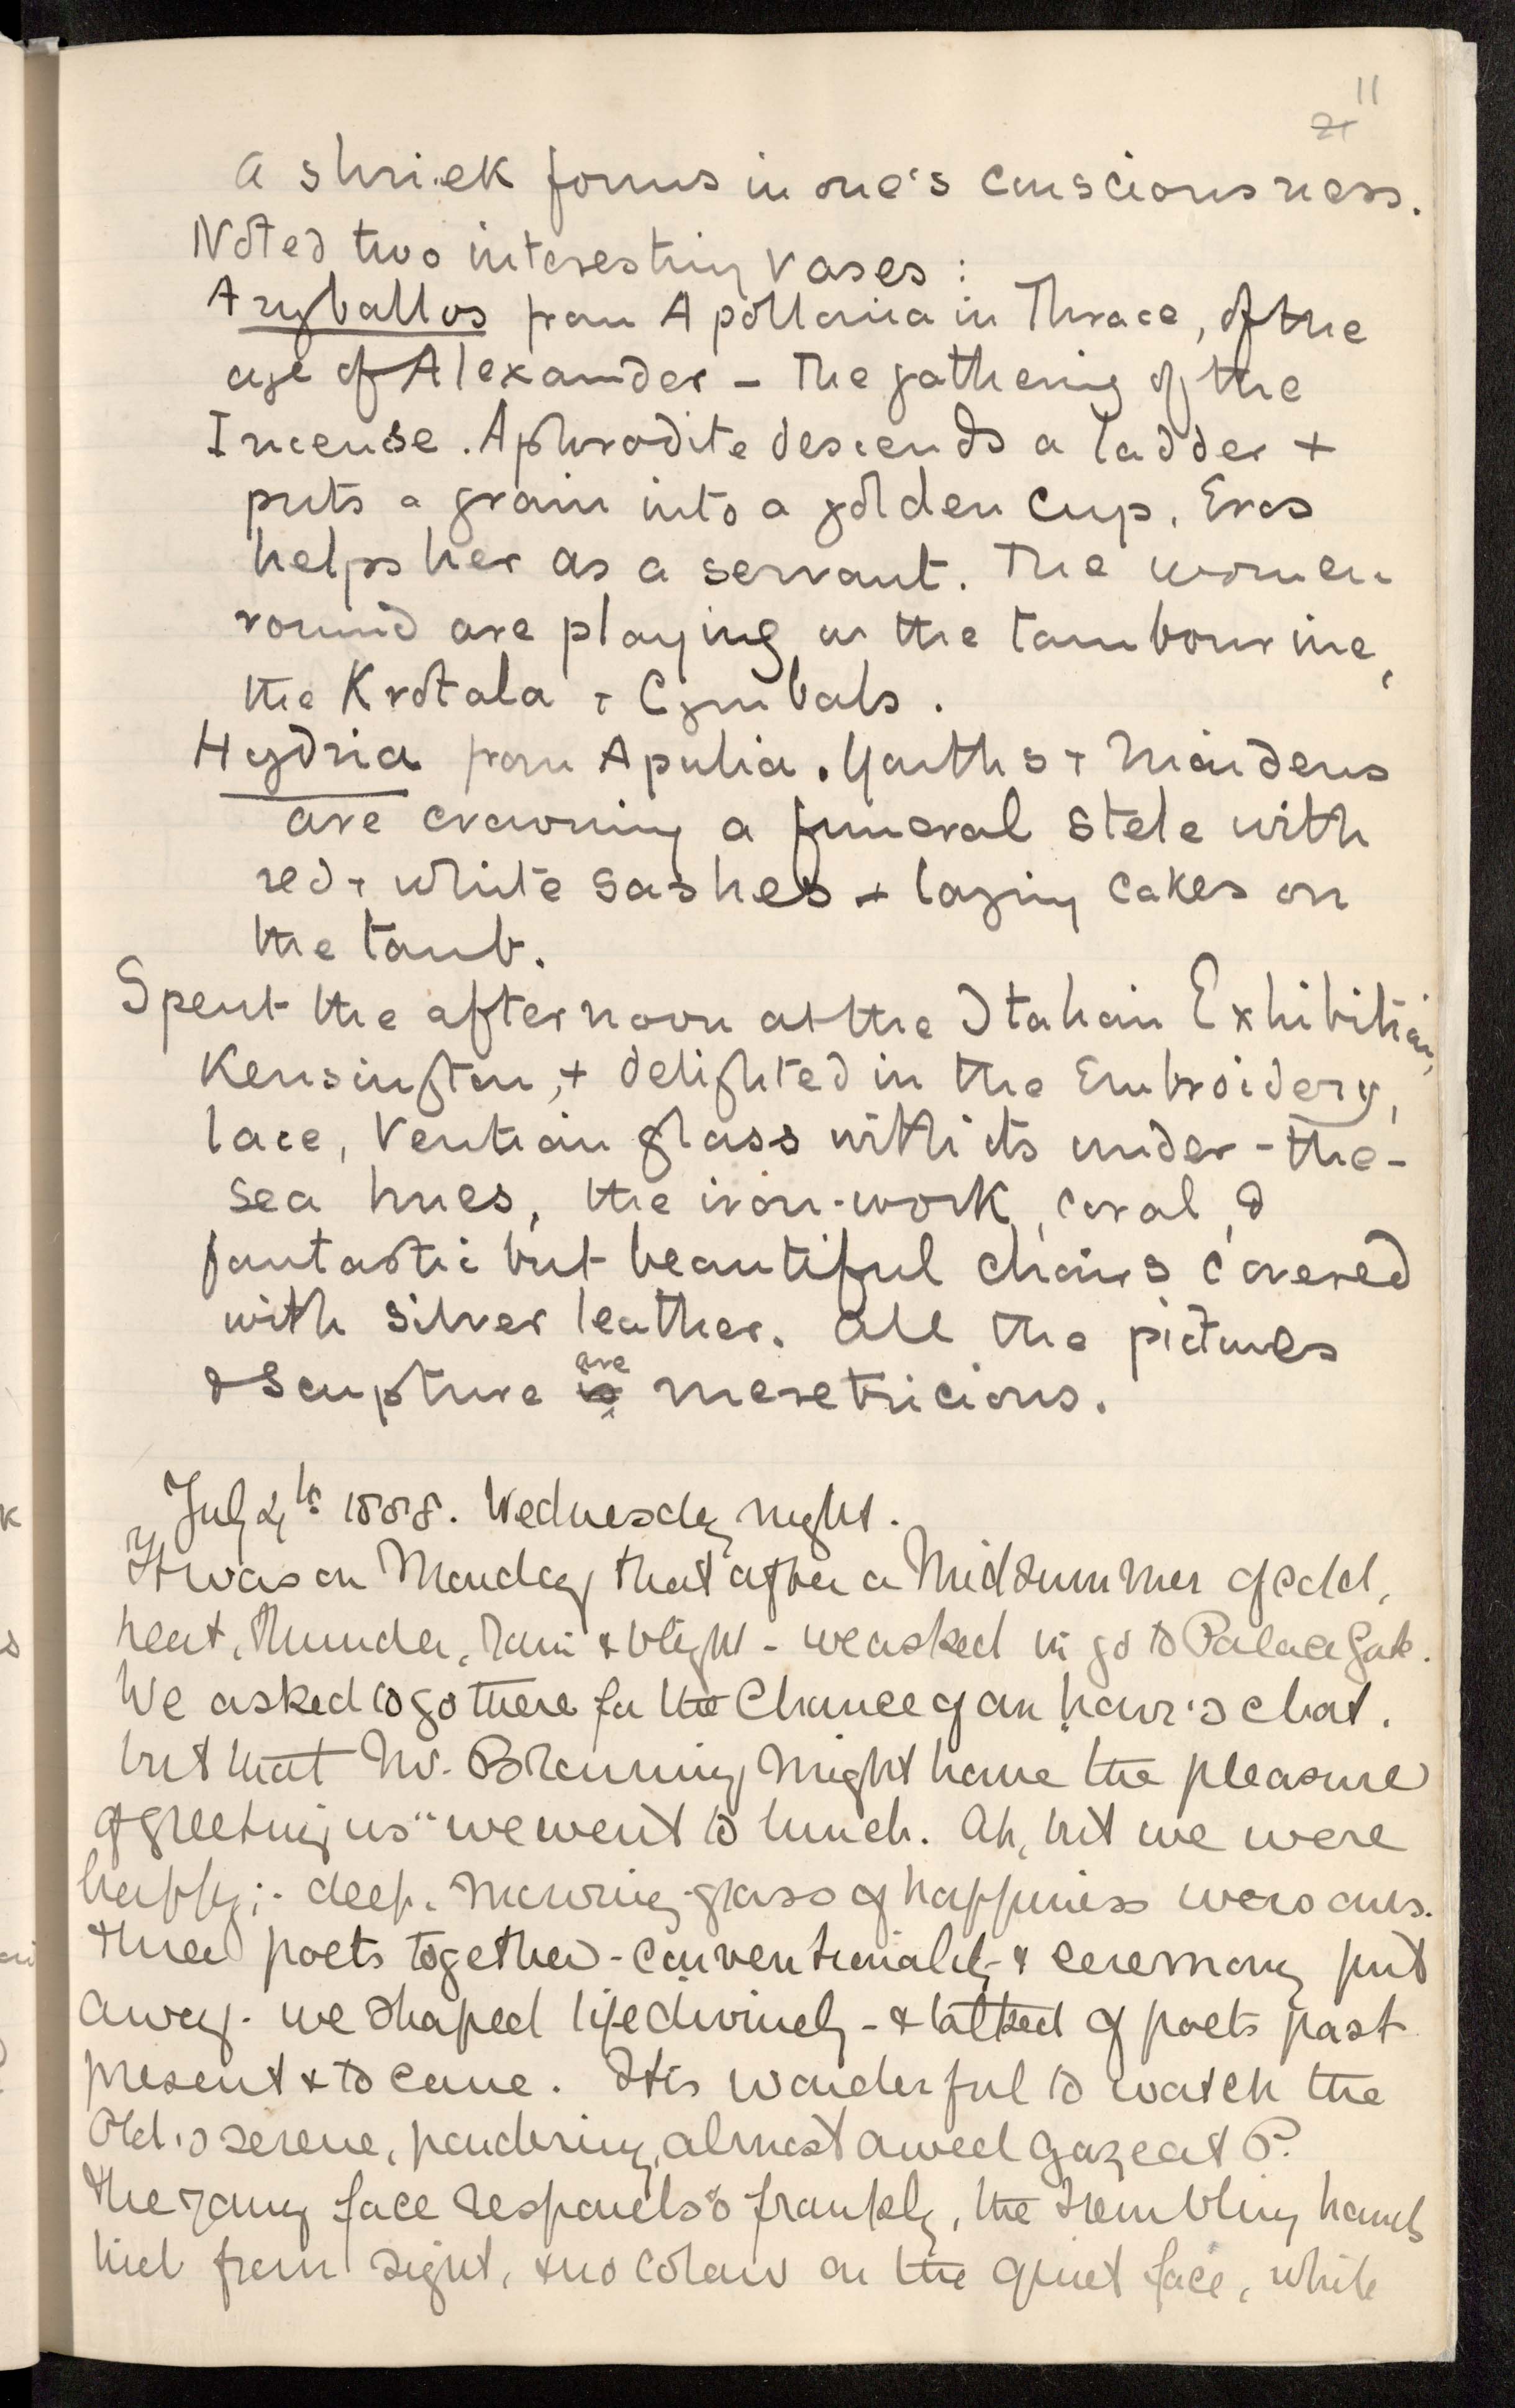 11
21
A shriek forms in one's consciousness.
Noted two interesting vases:
Aryballos from Apollonia in Thrace, of the
age of Alexander - The gathering of the
Incense. Aphrodite descends a ladder +
puts a grain into a golden cup. Eros
helps her as a servant. The women
round are playing on the tambourine,
the Krotala + Cymbals.
Hydria from Apulia. Youths + Maidens
are crowning a funeral stele with
red + white sashes + laying cakes on
the tomb.
Spent the afternoon at the Italian Exhibition,
Kensington, + delighted in the Embroidery,
lace, Ventian glass with its under-the-
sea hues, the iron-work, coral, &
fantastic but beautiful chairs covered
with silver leather. All the pictures
& scupture is are meretricious.
July 4th 1888. Wednesday night.
It was on Monday that after a Midsummer of cold,
heat, thunder, rain & blight - we asked to go to Palace Gate.
We asked to go there for the Chance of an hour's chat.
but that Mr. Browning might have the pleasure
of greeting us" we went to lunch. Ah, but we were
happy; - deep. mowing-grass of happiness were ours.
three poets together - conventionality & ceremony put
away - we shaped life divinely - & talked of poets past
present & to come. It is wonderful to watch the
Old's serene, pondering, almost awed gaze at P.
the young face responds so frankly, the trembling hands
hid from sight, & no colour on the quiet face, while